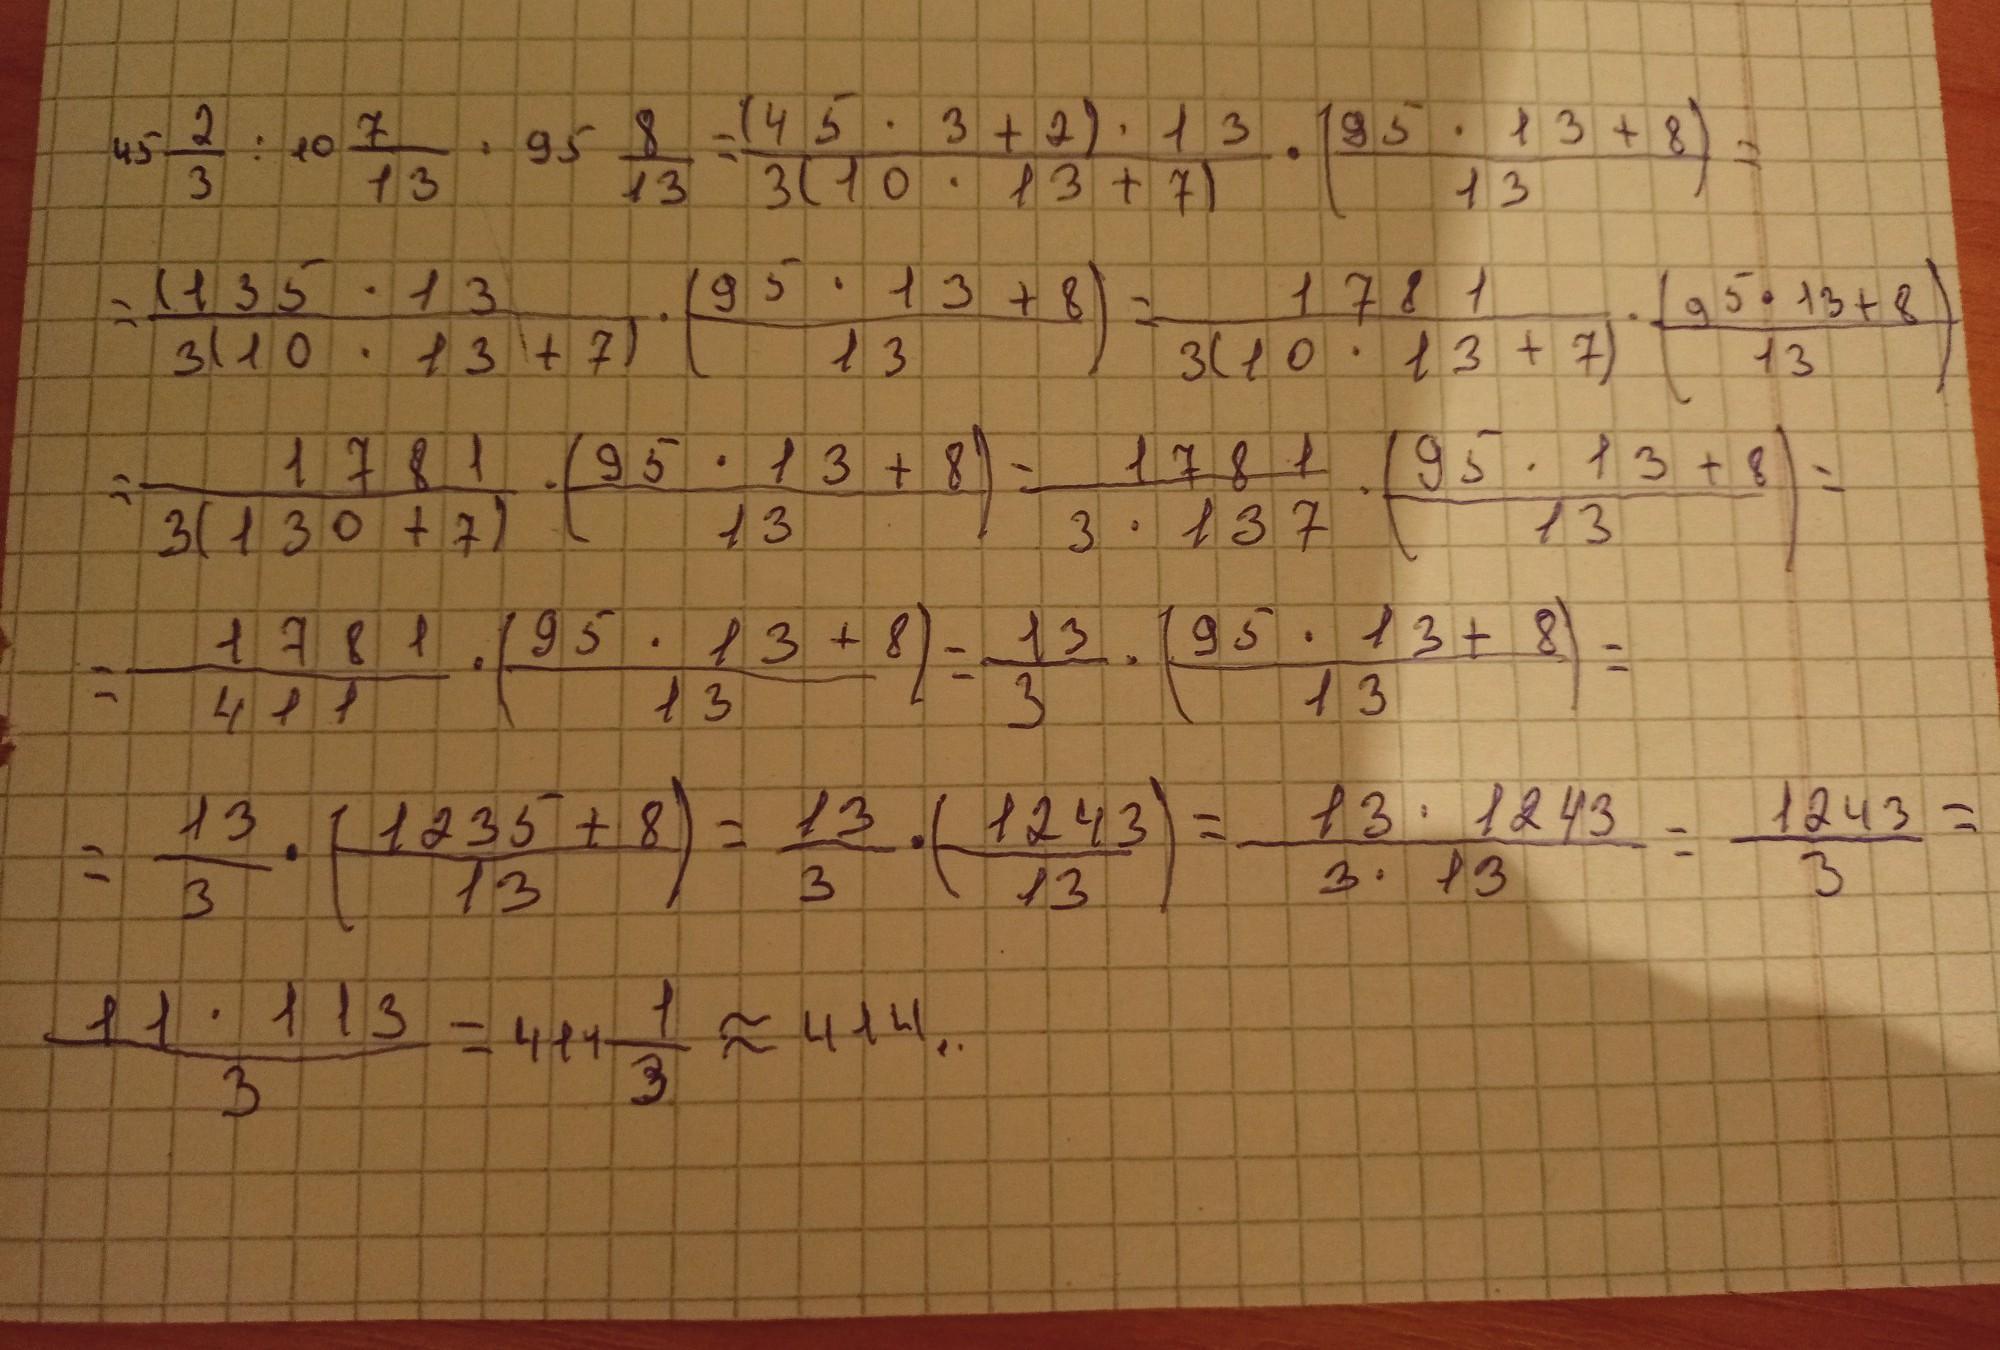 45 2/3 : 10 7/13 · 95 8/13 = (45 · 3 + 2) · 13 / 3(10 · 13 + 7) · (95 · 13 + 8 / 13) =
= (135 · 13 / 3(10 · 13 + 7) · (95 · 13 + 8 / 13) = 1781 / 3(10 · 13 + 7) · (95 · 13 + 8 / 13)
= 1781 / 3(130 + 7) · (95 · 13 + 8 / 13) = 1781 / 3 · 137 · (95 · 13 + 8 / 13) =
= 1781 / 411 · (95 · 13 + 8 / 13) = 13/3 · (95 · 13 + 8 / 13) =
= 13/3 · (1235 + 8 / 13) = 13/3 · (1243 / 13) = 13 · 1243 / 3 · 13 = 1243 / 3 =
11 · 113 / 3 = 414 1/3 ≈ 414..